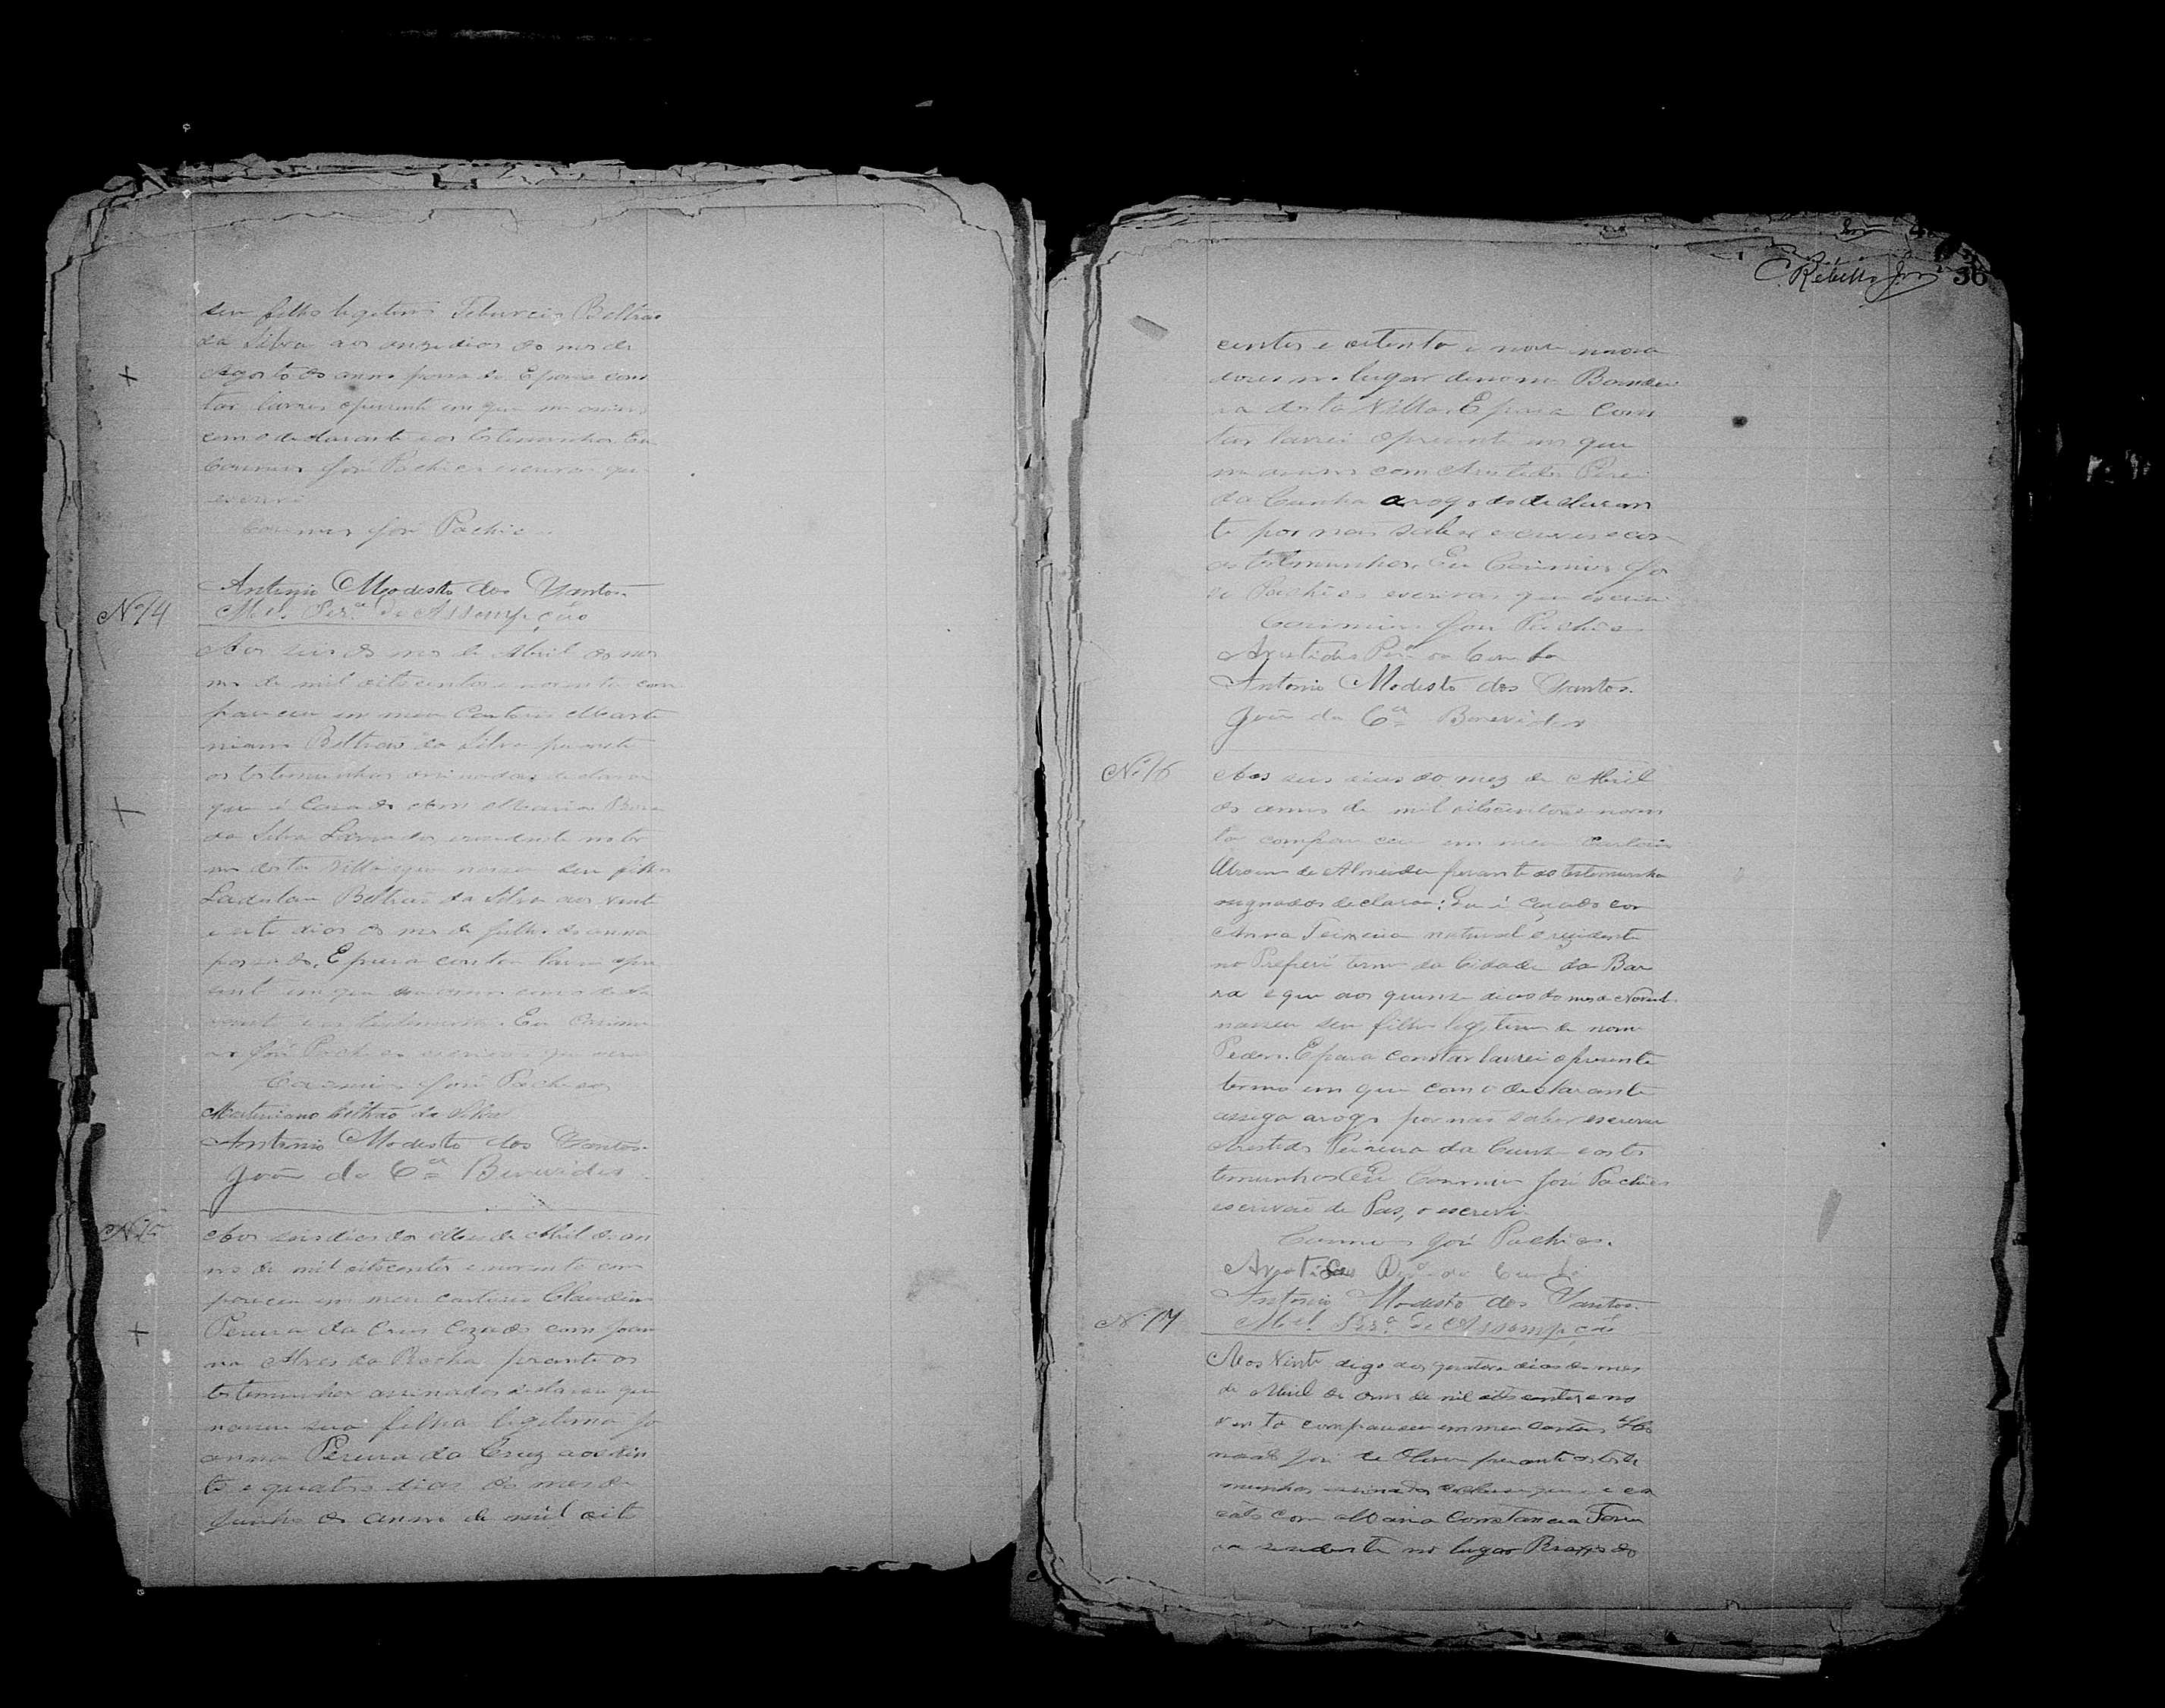 seu filho legitimo Tiburcio Beltrão
da Silva aos onze dias do mes de
Agosto do anno passado E para cons
tar lavrei o presente em que me assino
com o declarante e as testemunhas Eu
Casimiro José Pacheco escrivão que
escrevi
Casimiro José Pacheco
Antonio Modesto dos Santos.
Mel. Perª de Assumpção
Nº 14
Aos seis do mes de Abril do an
no de mil oitocentos e noventa com
pareceu em meu Cartorio Marti
niano Beltrão da Silva perante
as testemunhas assinadas declarou
que é Casado com Maria
da Silva Lavrador residente no ter
mo desta Villa que nasceu seu filho
Ladislau Beltrão da Silva aos vinte
e sete dias do mes de Julho do anno
passado. E para constar lavrei o pre
sente em que me assino com o decla
rante e as testemunhas. Eu Casimi
ro José Pacheco escrivão que escrevi
Casimiro José Pacheco
Martiniano Beltrão da Silva
Antonio Modesto dos Santos.
João da Cª Benevides
Nº 15
Aos seis dias do Mes de Abril do an
no de mil oitocentos e noventa com
pareceu em meu cartorio Claudin
Pereira da Cruz Cazado com Joan
na Alves da Rocha perante as
testemunhas assinadas declarou que
nasceu sua filha legitima Jo
anna Pereira da Cruz aos vin
te e quatro dias do mes de
Junho do anno de mil oito
C. Rebello Jor
36
centos e oitenta e nove mora
dores no lugar denom Bandei
ra desta Villa. E para Cons
tar lavrei o presente em que
me assino com Aristides Perei
da Cunha arogo do declaran
te por não saber escrever e com
as testemunhas. Eu Casimiro Jo
se Pacheco escrivão que escrevi
Casimiro José Pacheco
Aristides Perª da Cunha
Antonio Modesto dos Santos.
João da Cª Benevides
Nº 16
Aos seis dias do mez de Abril
do anno de mil oitocentos e noven
ta compareceu em meu Cartorio
de Almeida perante as testemunha
asignados declarou: Que é cazado com
Anna Teixeira natural e rezidente
no termo da Cidade da Bar
ra e que aos quinze dias do mes de Novemb
nasceu seu filho legitimo de nome
Pedro. E para constar lavrei o presente
termo em que com o declarante
assiga arogo por não saber escrever
Aristides Pereira da Cunha e as tes
temunhas Eu Casimiro José Pacheco
escrivão de Pas, o escrevi
Casimiro José Pacheco.
Aristides Perª da Cunha
Antonio Modesto dos Santos.
Mel. Perª de Assumpção
Nº 17
Aos Vinte digo aos quatorze dias do mes
de Abril do anno de mil oitocentos e no
venta compareceu em meu cartorio Ho
norato José de Oliveira perante as teste
munhas assinadas declarou que é ca
sado com Maria Constancia Ferrei
ra residente no lugar do